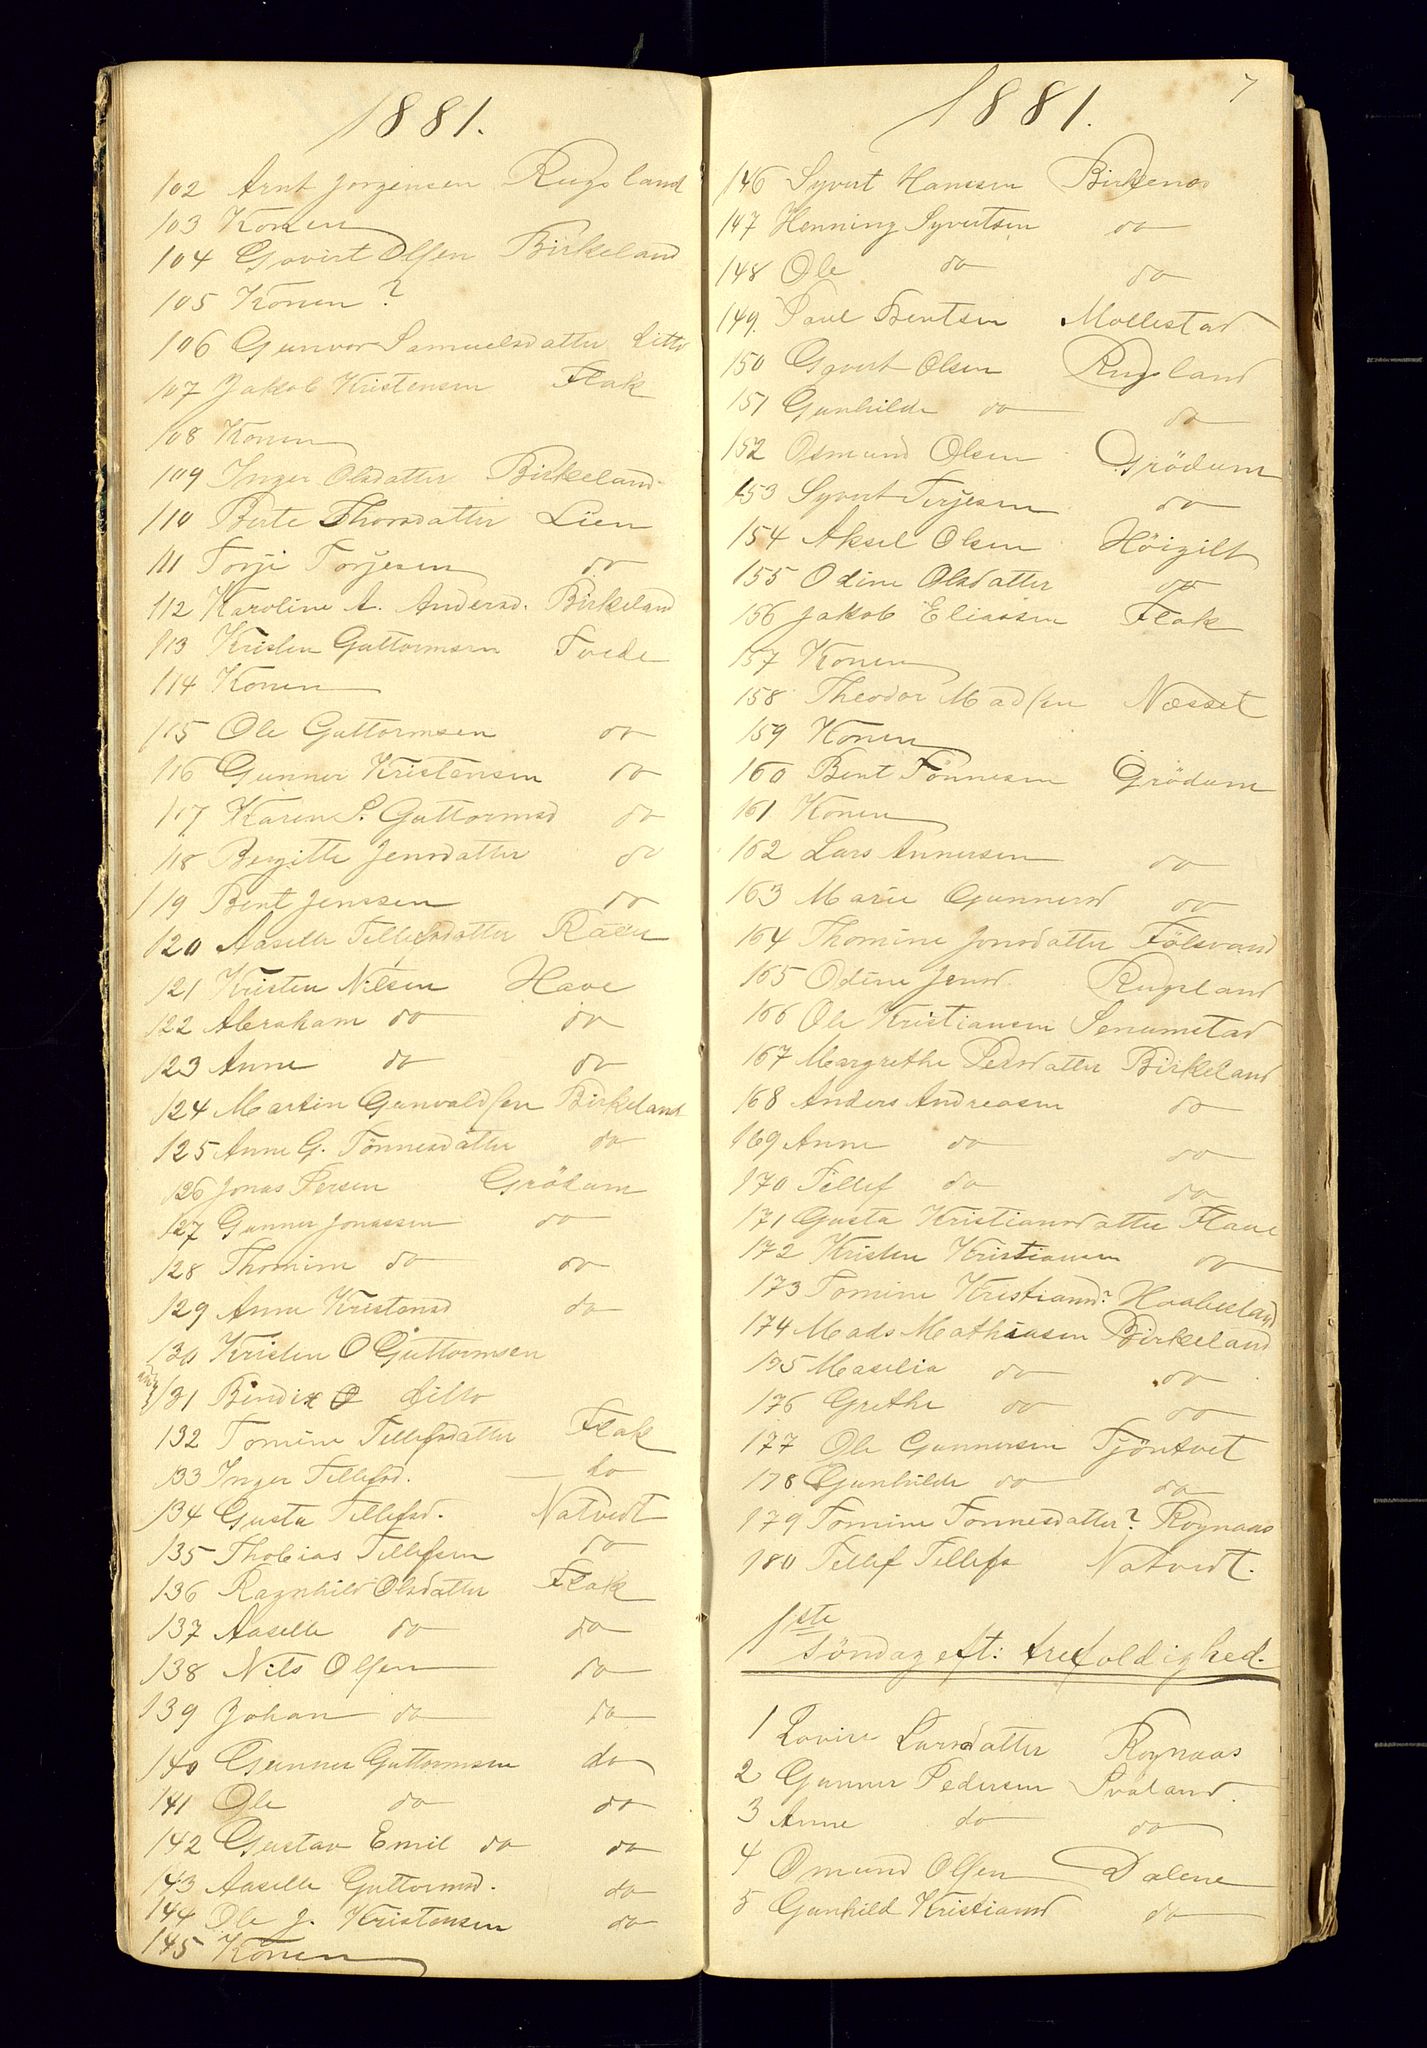 1881.
102 Arnt Jorgensen Rugsland
103 Konen
104 Govert Olsen Birkeland
105 Konen ?
106 Gunvor Samuelsdatter ditto
107 Jakob Kristensen Flak
108 Konen
109 Inger Olsdatter Birkeland
110 Berte Thorsdatter Lien
111 Torje Torjesen do
112 Karoline A. Andersd. Birkeland
113 Kristen Guttormsen Tvede
114 Konen
115 Ole Guttormsen do
116 Gunner Kristensen do
117 Karen S. Guttormsd do
118 Bergitte Jensdatter do
119 Bent Jenssen do
120 Aaselle Tellefsdatter
121 Kristen Nilsen Have
122 Abraham do do
123 Anne do do
124 Martin Gunvaldsen Birkeland
125 Anne G. Tönnesdatter do
126 Jonas Persen Grödum
127 Gunner Jonassen do
128 Thomine do do
129 Anne Kristensd do
130 Kristen O Guttormsen
131 Bendix O ditto
132 Tomine Tellefsdatter Flak
133 Inger Tellefsd. do
134 Gusta Tellefsd. Natvedt
135 Thobias Tellefsen do
136 Ragnhild Olsdatter Flak
137 Aaselle do do
138 Nils Olsen do
139 Johan do do
140 Gunner Guttormsen do
141 Ole do do
142 Gustav Emil do do
143 Aaselle Guttormsd. do
144 Ole J. Kristensen do
145 Konen
1881. 7
146 Syvert Hanssen Birkenes
147 Henning Syvertsen do
148 Ole do do
149. Paul Bentsen Mollestad
150 Govert Olsen Rugsland
151 Gunhilde do do
152 Osmund Olsen Grödum
153 Syvert Terjesen do
154 Aksel Olsen Höigilt
155 Odine Olsdatter do
156 Jakob Eliassen Flak
157 Konen
158 Theodor Madsen Næsset
159 Konen
160 Bent Tönnesen Grödum
161 Konen
162 Lars Annersen do
163 Marie Gunnersd do
164 Thomine Jonsdatter Fölsvand
165 Odine Jensd. Rugsland
166 Ole Kristiansen Senumstad
167 Margrethe Persdatter Birkeland
168 Anders Andreasen do
169 Anne do do
170 Tellef do do
171 Gusta Kristiansdatter Flaae
172 Kristen Kristiansen do
173 Tomine Kristiansd? Haabesland
174 Mads Mathiasen Birkeland
175 Masilia do do
176 Grethe do do
177 Ole Gunnersen Tjöntvet
178 Gunhilde do do
179 Tomine Tonnesdatter? Roynaas
180 Tellef Tellefs Natvedt.
1ste Söndag eft: trefoldighed.
1 Lovise Larsdatter Roynaas
2 Gunner Pedersen Svaland.
3 Anne do do
4 Omund Olsen Dalene
5 Gunhild Kristiansd do